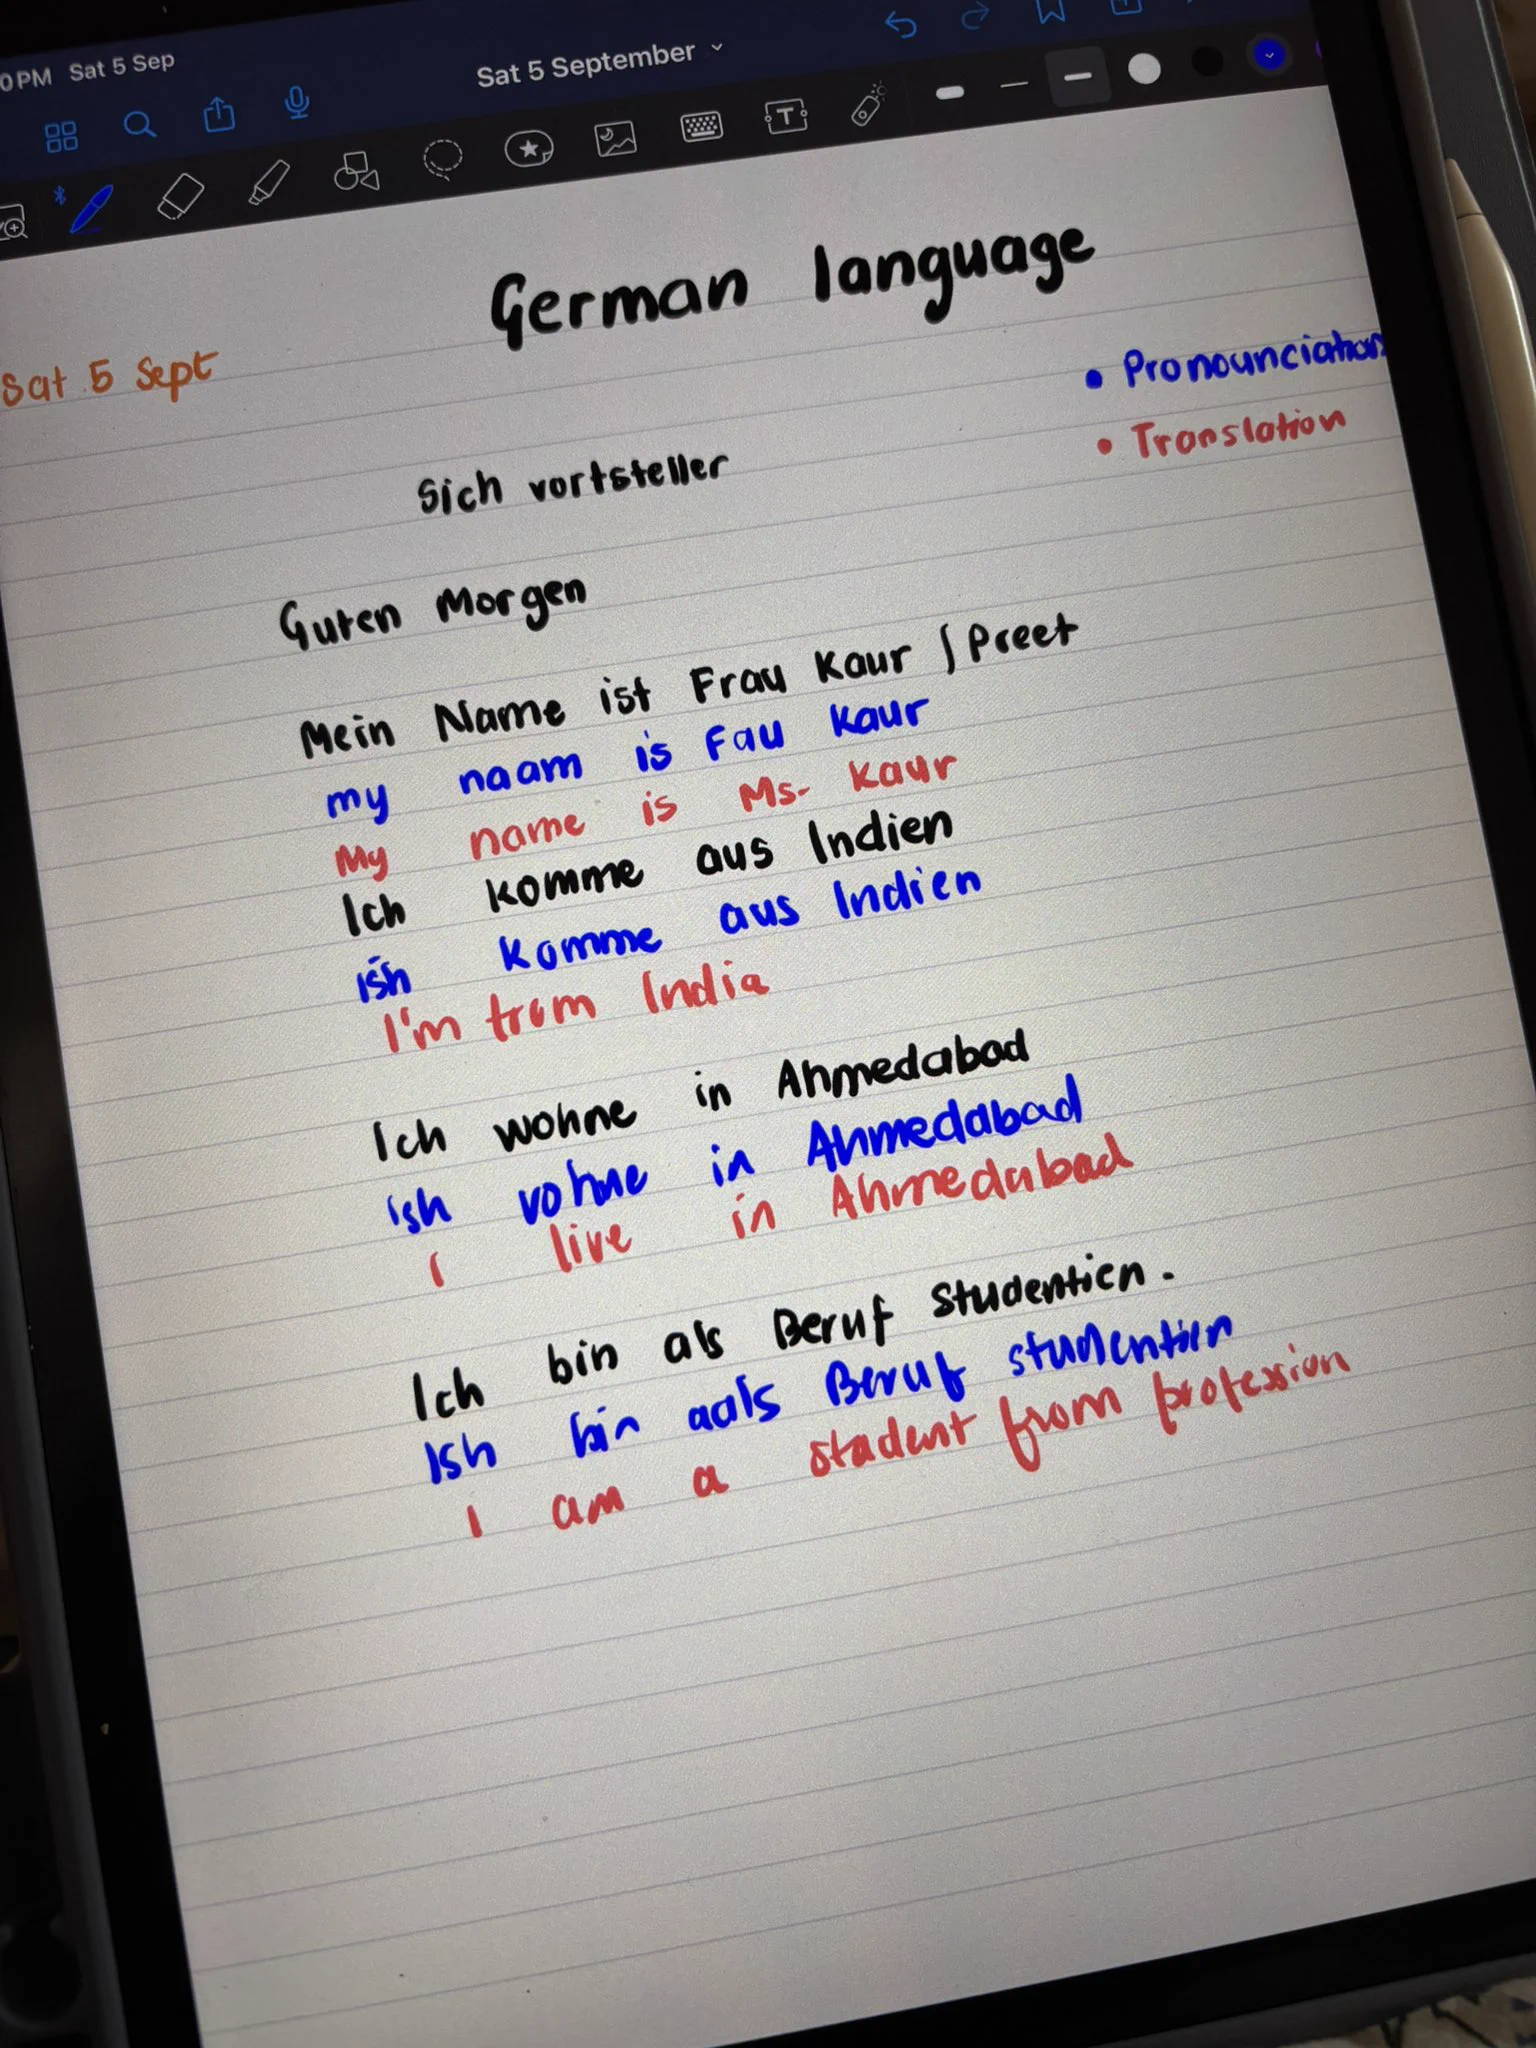 0 PM Sat 5 Sep
Sat 5 September
T
German language
Sat 5 Sept
• Pronounciation
• Translation
Sich vortsteller
Guten Morgen
Mein Name ist Frau Kaur / Preet
my naam is Fau Kaur
My name is Ms. Kaur
Ich komme aus Indien
ish komme aus Indien
I'm from India
Ich wohne in Ahmedabad
ish vohne in Ahmedabad
I live in Ahmedabad
Ich bin als Beruf studentien.
Ish bin aals Beruf studentien
I am a student from profession